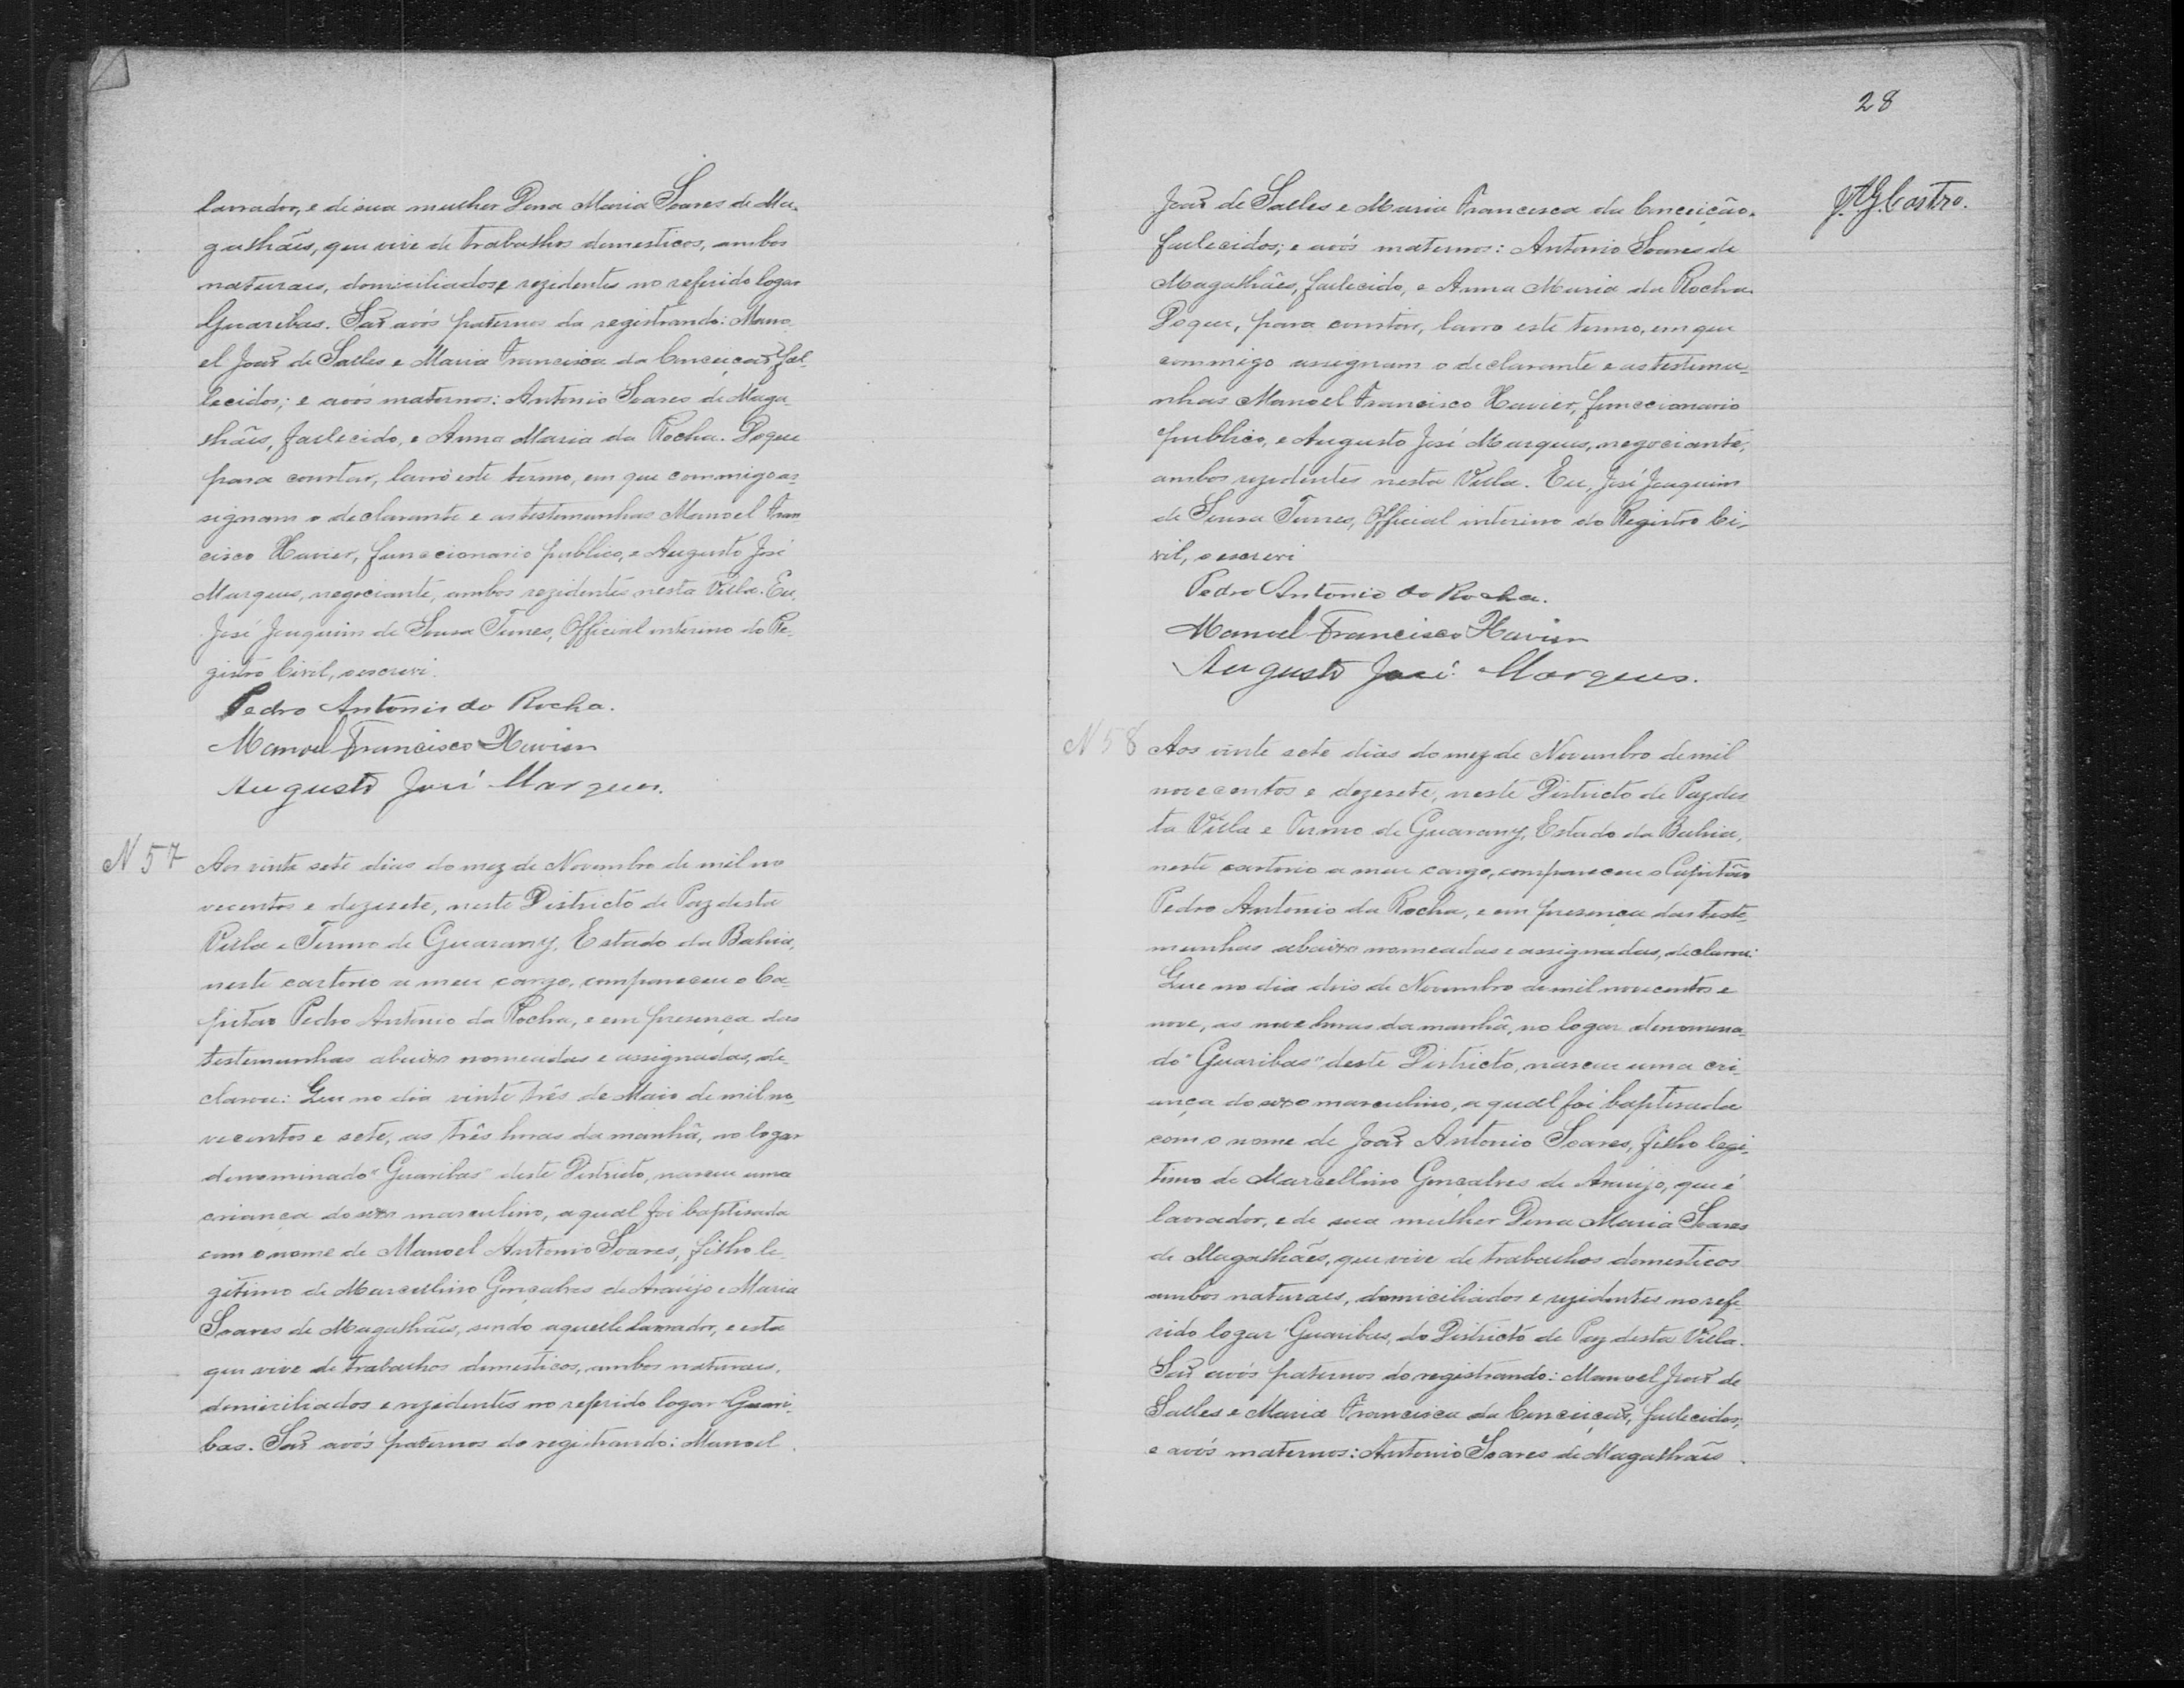 lavrador, e de sua mulher Dona Maria Soares de Ma-
galhães, que vive de trabalhos domesticos, ambos
naturaes, domiciliados e rezidentes no referido logar
Guaribas. São avós paternos da registrando: Mano-
el João de Salles e Maria Francisca da Conceição, fal-
lecidos; e avós maternos: Antonio Soares de Maga-
lhães, fallecido, e Anna Maria da Rocha. Do que
para constar, lavro este termo, em que commigo as-
signam o declarante e as testemunhas Manoel Fran-
cisco Xavier, funccionario publico, e Augusto José
Marques, negociante, ambos rezidentes nesta Villa. Eu,
José Joaquim de Sousa Tunes, Official interino do Re-
gistro Civil, o escrevi.
Pedro Antonio da Rocha.
Manoel Francisco Xavier
Augusto José Marques.
N 57 Aos vinte sete dias do mez de Novembro de mil no
vecentos e dezesete, neste Districto de Paz desta
Villa e Termo de Guarany, Estado da Bahia,
neste cartorio a meu cargo, compareceu o Ca-
pitão Pedro Antonio da Rocha, e em presença das
testemunhas abaixo nomeadas e assignadas, de-
clarou: Que no dia vinte três de Maio de mil no-
vecentos e sete, as três horas da manhã, no logar
denominado "Guaribas" deste Districto, nasceu uma
criança do sexo masculino, a qual foi baptisada
com o nome de Manoel Antonio Soares, filho le-
gitimo de Marcellino Gonçalves de Araújo e Maria
Soares de Magalhães, sendo aquelle lavrador, e esta
que vive de trabalhos domesticos, ambos naturaes,
domiciliados e rezidentes no referido logar Guari-
bas. São avós paternos do registrando: Manoel
28
J. A. G. Castro.
João de Salles e Maria Francisca da Conceição,
fallecidos; e avós maternos: Antonio Soares de
Magalhães, fallecido, e Anna Maria da Rocha.
Do que, para constar, lavro este termo, em que
commigo assignam o declarante e as testemu-
nhas Manoel Francisco Xavier, funccionario
publico, e Augusto José Marques, negociante,
ambos rezidentes nesta Villa. Eu, José Joaquim
de Sousa Tunes, Official interino do Registro Ci-
vil, o escrevi
Pedro Antonio da Rocha.
Manoel Francisco Xavier
Augusto José Marques.
N 58 Aos vinte sete dias do mez de Novembro de mil
novecentos e dezesete, neste Districto de Paz des
ta Villa e Termo de Guarany, Estado da Bahia,
neste cartorio a meu cargo, compareceu o Capitão
Pedro Antonio da Rocha, e em presença das teste-
munhas abaixo nomeadas e assignadas, declarou:
Que no dia dois de Novembro de mil novecentos e
nove, as nove horas da manhã, no logar denomina-
do "Guaribas" deste Districto, nasceu uma cri-
ança do sexo masculino, a qual foi baptisada
com o nome de João Antonio Soares, filho legi-
timo de Marcellino Gonçalves de Araújo, que é
lavrador, e de sua mulher Dona Maria Soares
de Magalhães, que vive de trabalhos domesticos
ambos naturaes, domiciliados e rezidentes no refe-
rido logar Guaribas, do Districto de Paz desta Villa.
São avós paternos do registrando: Manoel João de
Salles e Maria Francisca da Conceição, fallecidos,
e avós maternos: Antonio Soares de Magalhães